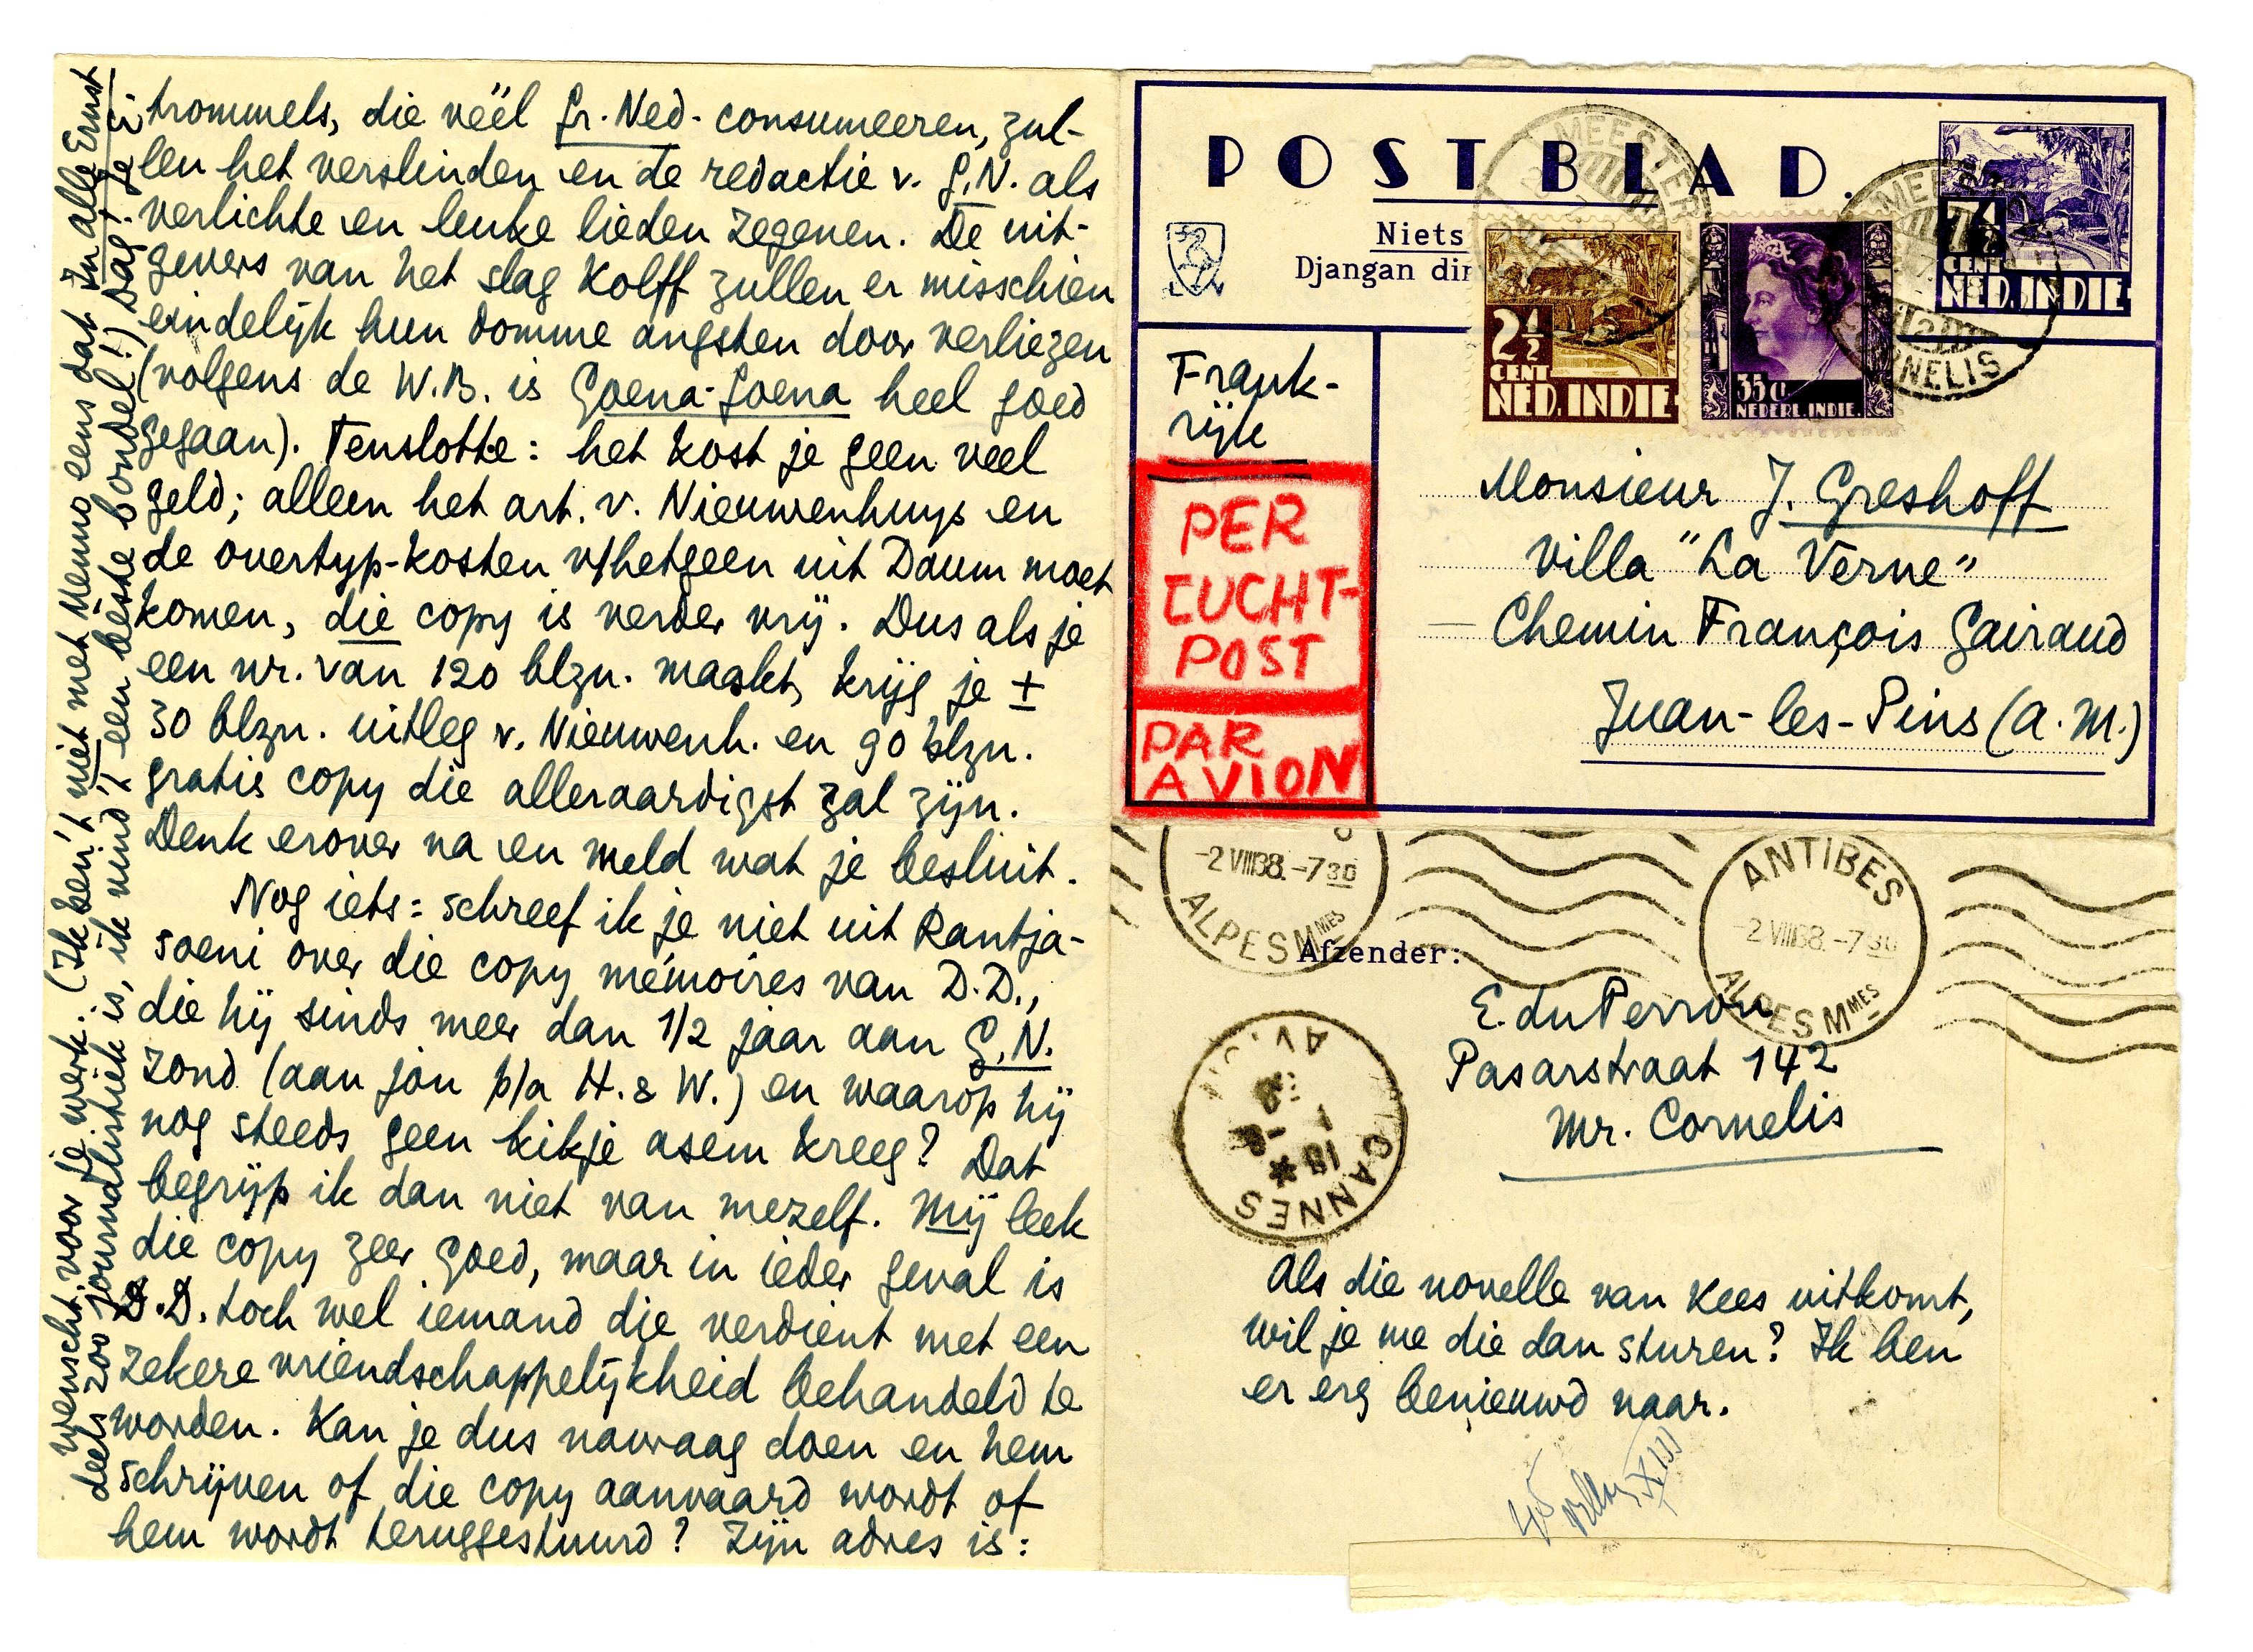 trommels, die véél Gr. Ned. consumeeren, zul-
len het verslinden en de redactie v. G.N. als
verlichte en leuke lieden zegenen. De uit-
gevers van het slag Kolff zullen er misschien
eindelijk hun domme angsten door verliezen
(volgens de W.B. is Goena-Goena heel goed
gegaan). Tenslotte: het kost je geen veel
geld; alleen het art. v. Nieuwenhuys en
de overtyp-kosten v/hetgeen uit Daum moet
komen, die copy is verder vrij. Dus als je
een nr. van 120 blzn. maakt, krijg je ±
30 blzn. uitleg v. Nieuwenh. en 90 blzn.
gratis copy die alleraardigst zal zijn.
Denk erover na en meld wat je besluit.
Nog iets: schreef ik je niet uit Rantja-
soeni over die copy mémoires van D.D.,
die hij sinds meer dan 1/2 jaar aan G.N.
zond (aan Jan p/a H. & W.) en waarop hij
nog steeds geen kikje asem kreeg? Dat
begrijp ik dan niet van mezelf. Mij leek
die copy zeer goed, maar in ieder geval is
D.D. toch wel iemand die verdient met een
zekere vriendschappelijkheid behandeld te
worden. Kan je dus navraag doen en hem
schrijven of die copy aanvaard wordt of
hem wordt teruggestuurd? Zijn adres is:
wenscht voor je werk. (Ik ben 't niet met Menno eens dat In alle Ernst
deels zoo journalistiek is, ik vind 't een béste bondel!) Dag! Je
POSTBLAD.
Niets
Djangan dir
MEESTER
2½
CENT
NED. INDIE
35c
NEDERL. INDIE.
7½
CENT
NED. INDIE
CORNELIS
Frank-
rijk
PER
LUCHT-
POST
PAR
AVION
Monsieur J. Greshoff
Villa "La Verne"
Chemin François Gairaud
Juan-les-Pins (A.M.)
-2 VIII 38.-7 30
ALPES MMES
ANTIBES
-2 VIII 38.-7 30
ALPES MMES
Afzender:
E. du Perron
Pasarstraat 142
Mr. Cornelis
CANNES
Als die novelle van Kees uitkomt,
wil je me die dan sturen? Ik ben
er erg benieuwd naar.